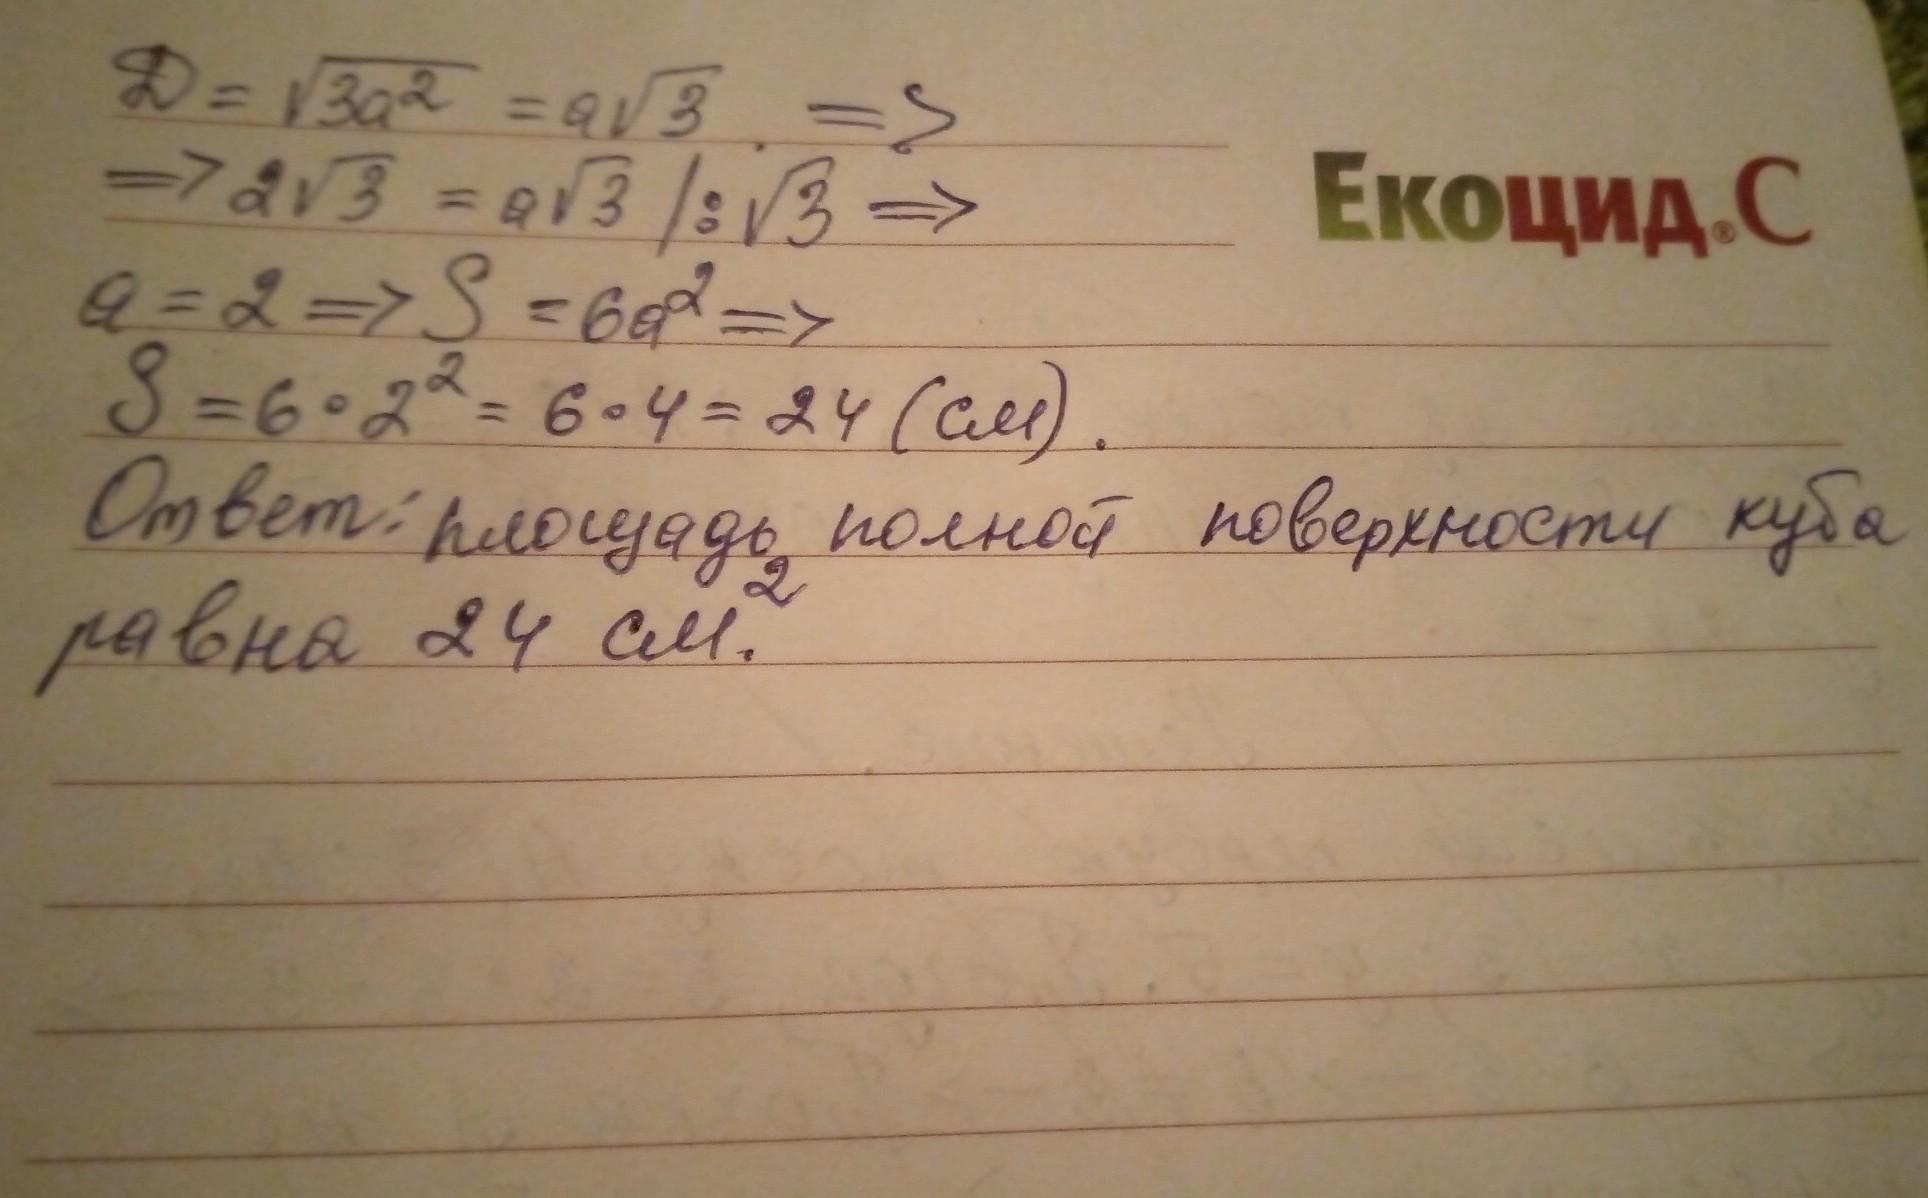 D = √3a² = a√3. =>
=> 2√3 = a√3 |:√3 =>
Екоцид® С
a = 2 => S = 6a² =>
S = 6 • 2² = 6 • 4 = 24 (см).
Ответ: площадь полной поверхности куба
равна 24 см.²